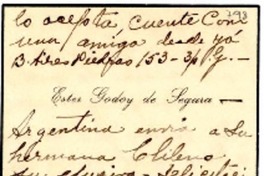 298
lo acepta cuente con
una amiga desde ya
B. Aires Piedras 153 - 3p
Ester Godoy de Segura
Argentina envia a su
hermana Chilena
su